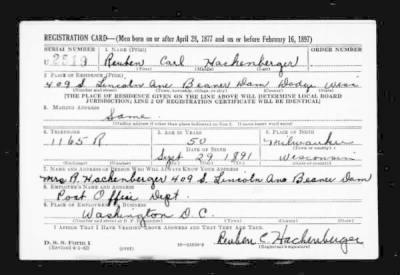 REGISTRATION CARD—(Men born on or after April 28, 1877 and on or before February 16, 1897)
SERIAL NUMBER 1. NAME (Print) ORDER NUMBER
U 2513 Reuben Carl Hackenberger
(First) (Middle) (Last)
2. PLACE OF RESIDENCE (Print)
409 S. Lincoln Ave Beaver Dam Dodge Wisc
[THE PLACE OF RESIDENCE GIVEN ON THE LINE ABOVE WILL DETERMINE LOCAL BOARD
JURISDICTION; LINE 2 OF REGISTRATION CERTIFICATE WILL BE IDENTICAL]
3. MAILING ADDRESS
Same
4. TELEPHONE 5. AGE IN YEARS 6. PLACE OF BIRTH
1165 R 50 Milwaukee
DATE OF BIRTH
Sept 29 1891 Wisconsin
7. NAME AND ADDRESS OF PERSON WHO WILL ALWAYS KNOW YOUR ADDRESS
Mrs R. Hackenberger 409 S. Lincoln Ave Beaver Dam
8. EMPLOYER'S NAME AND ADDRESS
Post Office Dept.
9. PLACE OF EMPLOYMENT OR BUSINESS
Washington D.C.
I AFFIRM THAT I HAVE VERIFIED ABOVE ANSWERS AND THAT THEY ARE TRUE.
D. S. S. Form 1
Reuben C. Hackenberger
(Registrant's signature)